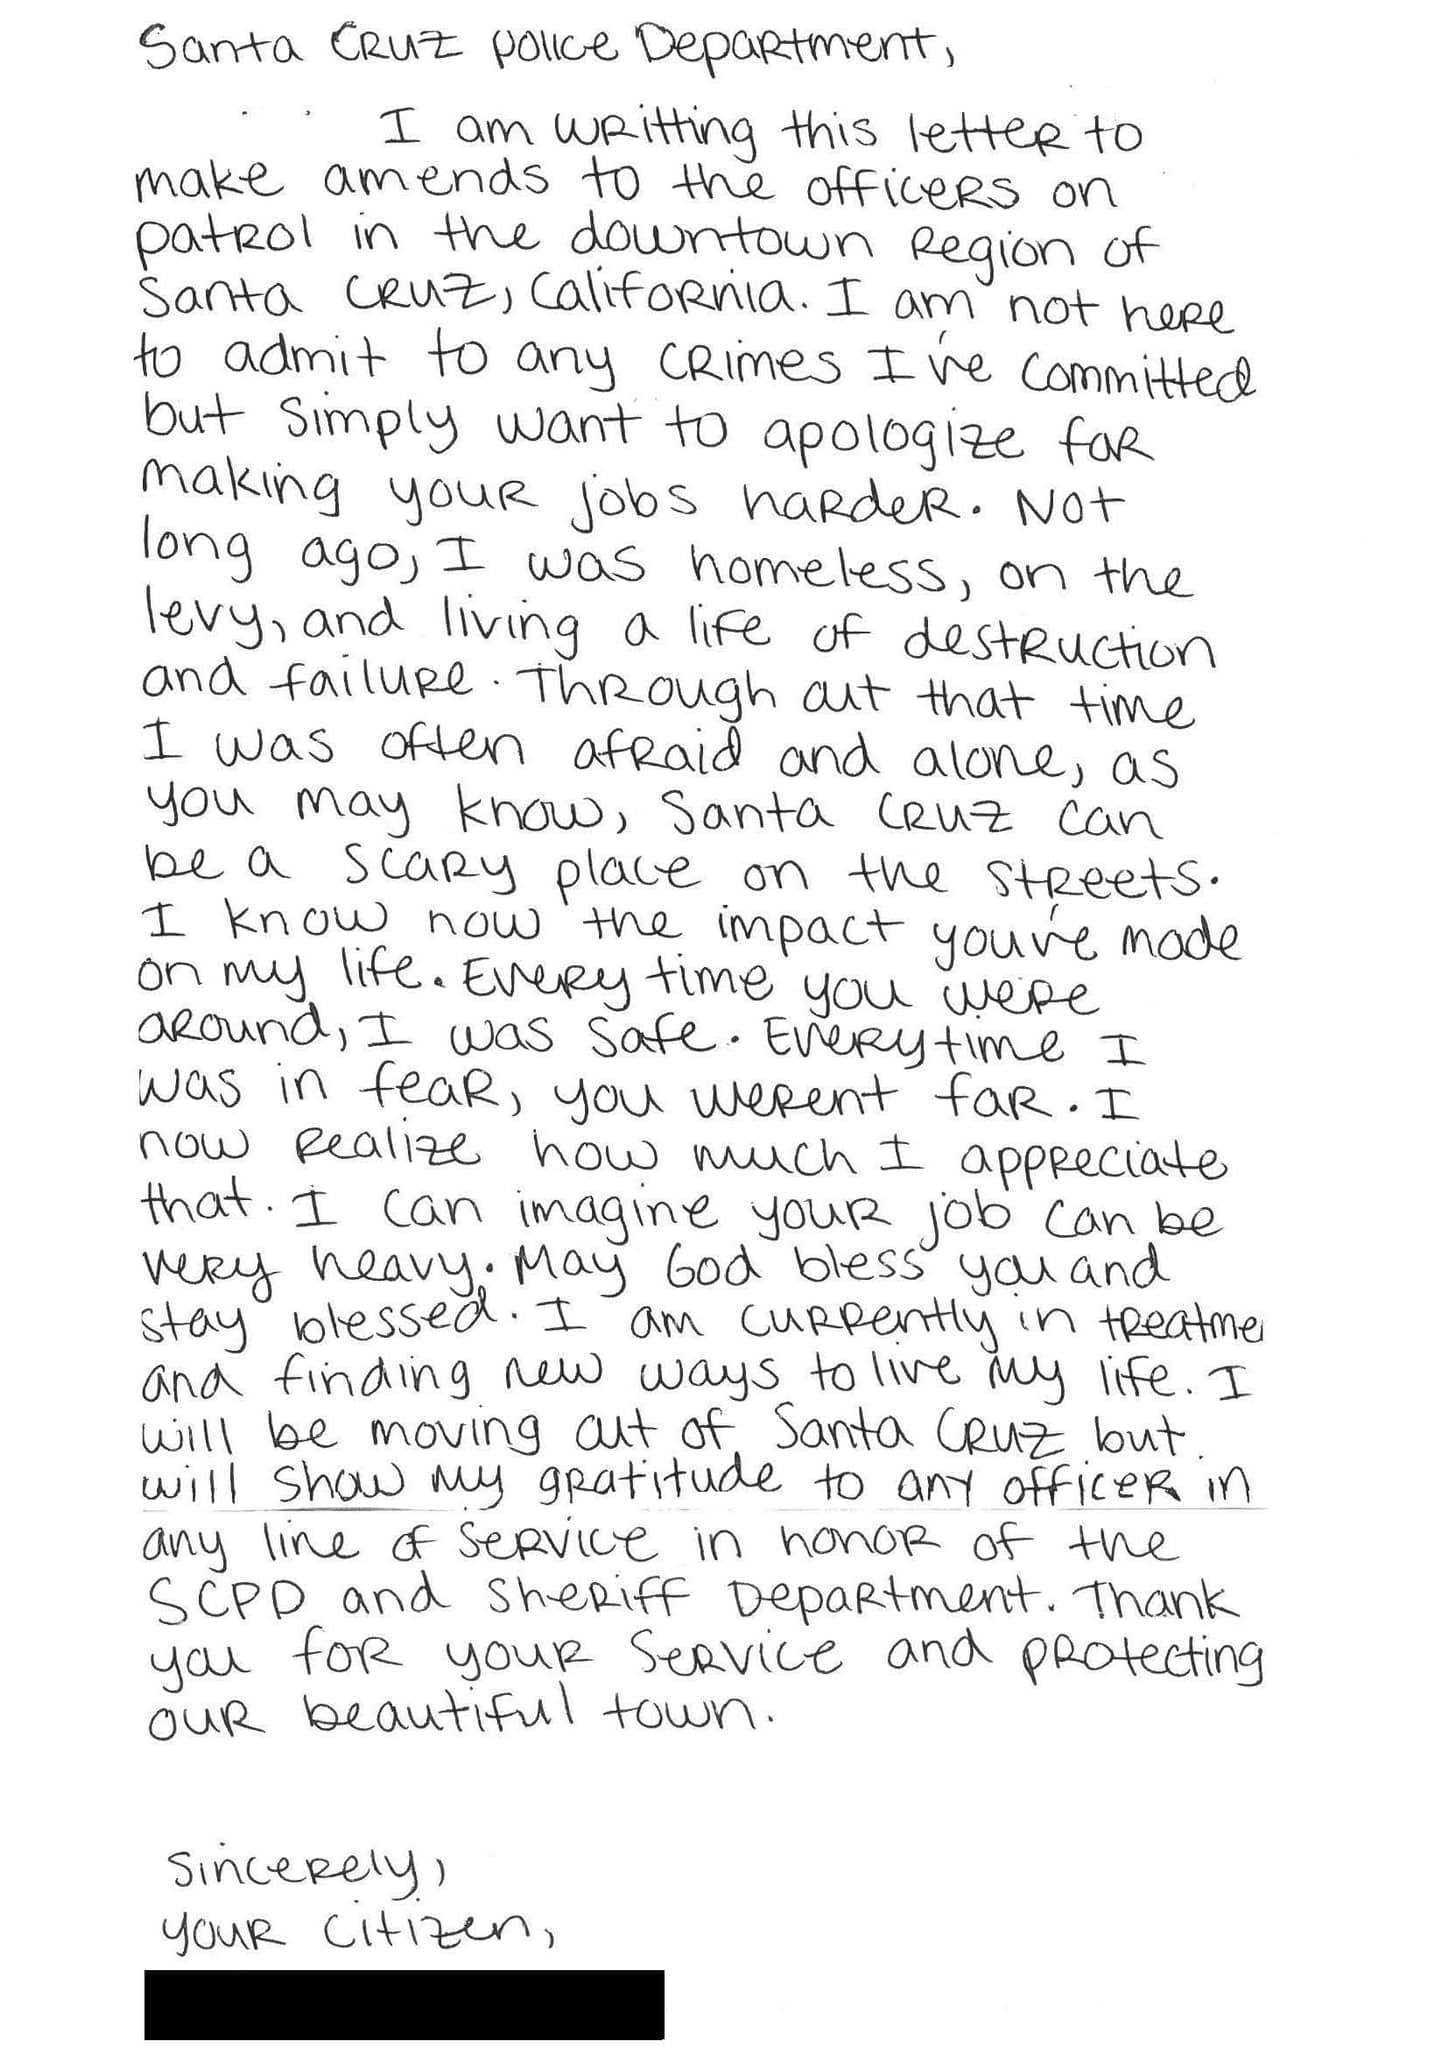 Santa Cruz Police Department,
I am writting this letter to
make amends to the officers on
patrol in the downtown region of
Santa Cruz, California. I am not here
to admit to any crimes I've committed
but simply want to apologize for
making your jobs harder. Not
long ago, I was homeless, on the
levy, and living a life of destruction
and failure. Through out that time
I was often afraid and alone, as
you may know, Santa Cruz can
be a scary place on the streets.
I know now the impact you've made
on my life. Every time you were
around, I was safe. Everytime I
was in fear, you werent far. I
now realize how much I appreciate
that. I can imagine your job can be
very heavy. May God bless you and
stay blessed. I am currently in treatme
and finding new ways to live my life. I
will be moving out of Santa Cruz but
will show my gratitude to any officer in
any line of service in honor of the
SCPD and Sheriff Department. Thank
you for your service and protecting
our beautiful town.
Sincerely,
Your citizen,